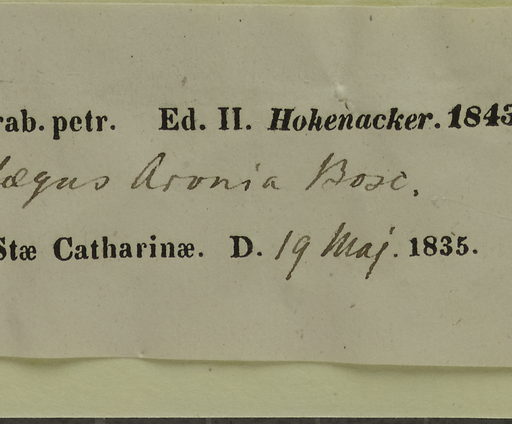 rab. petr. Ed. II. Hohenacker. 1843
tægus Aronia Bosc.
Stæ Catharinæ. D. 19 Maj. 1835.